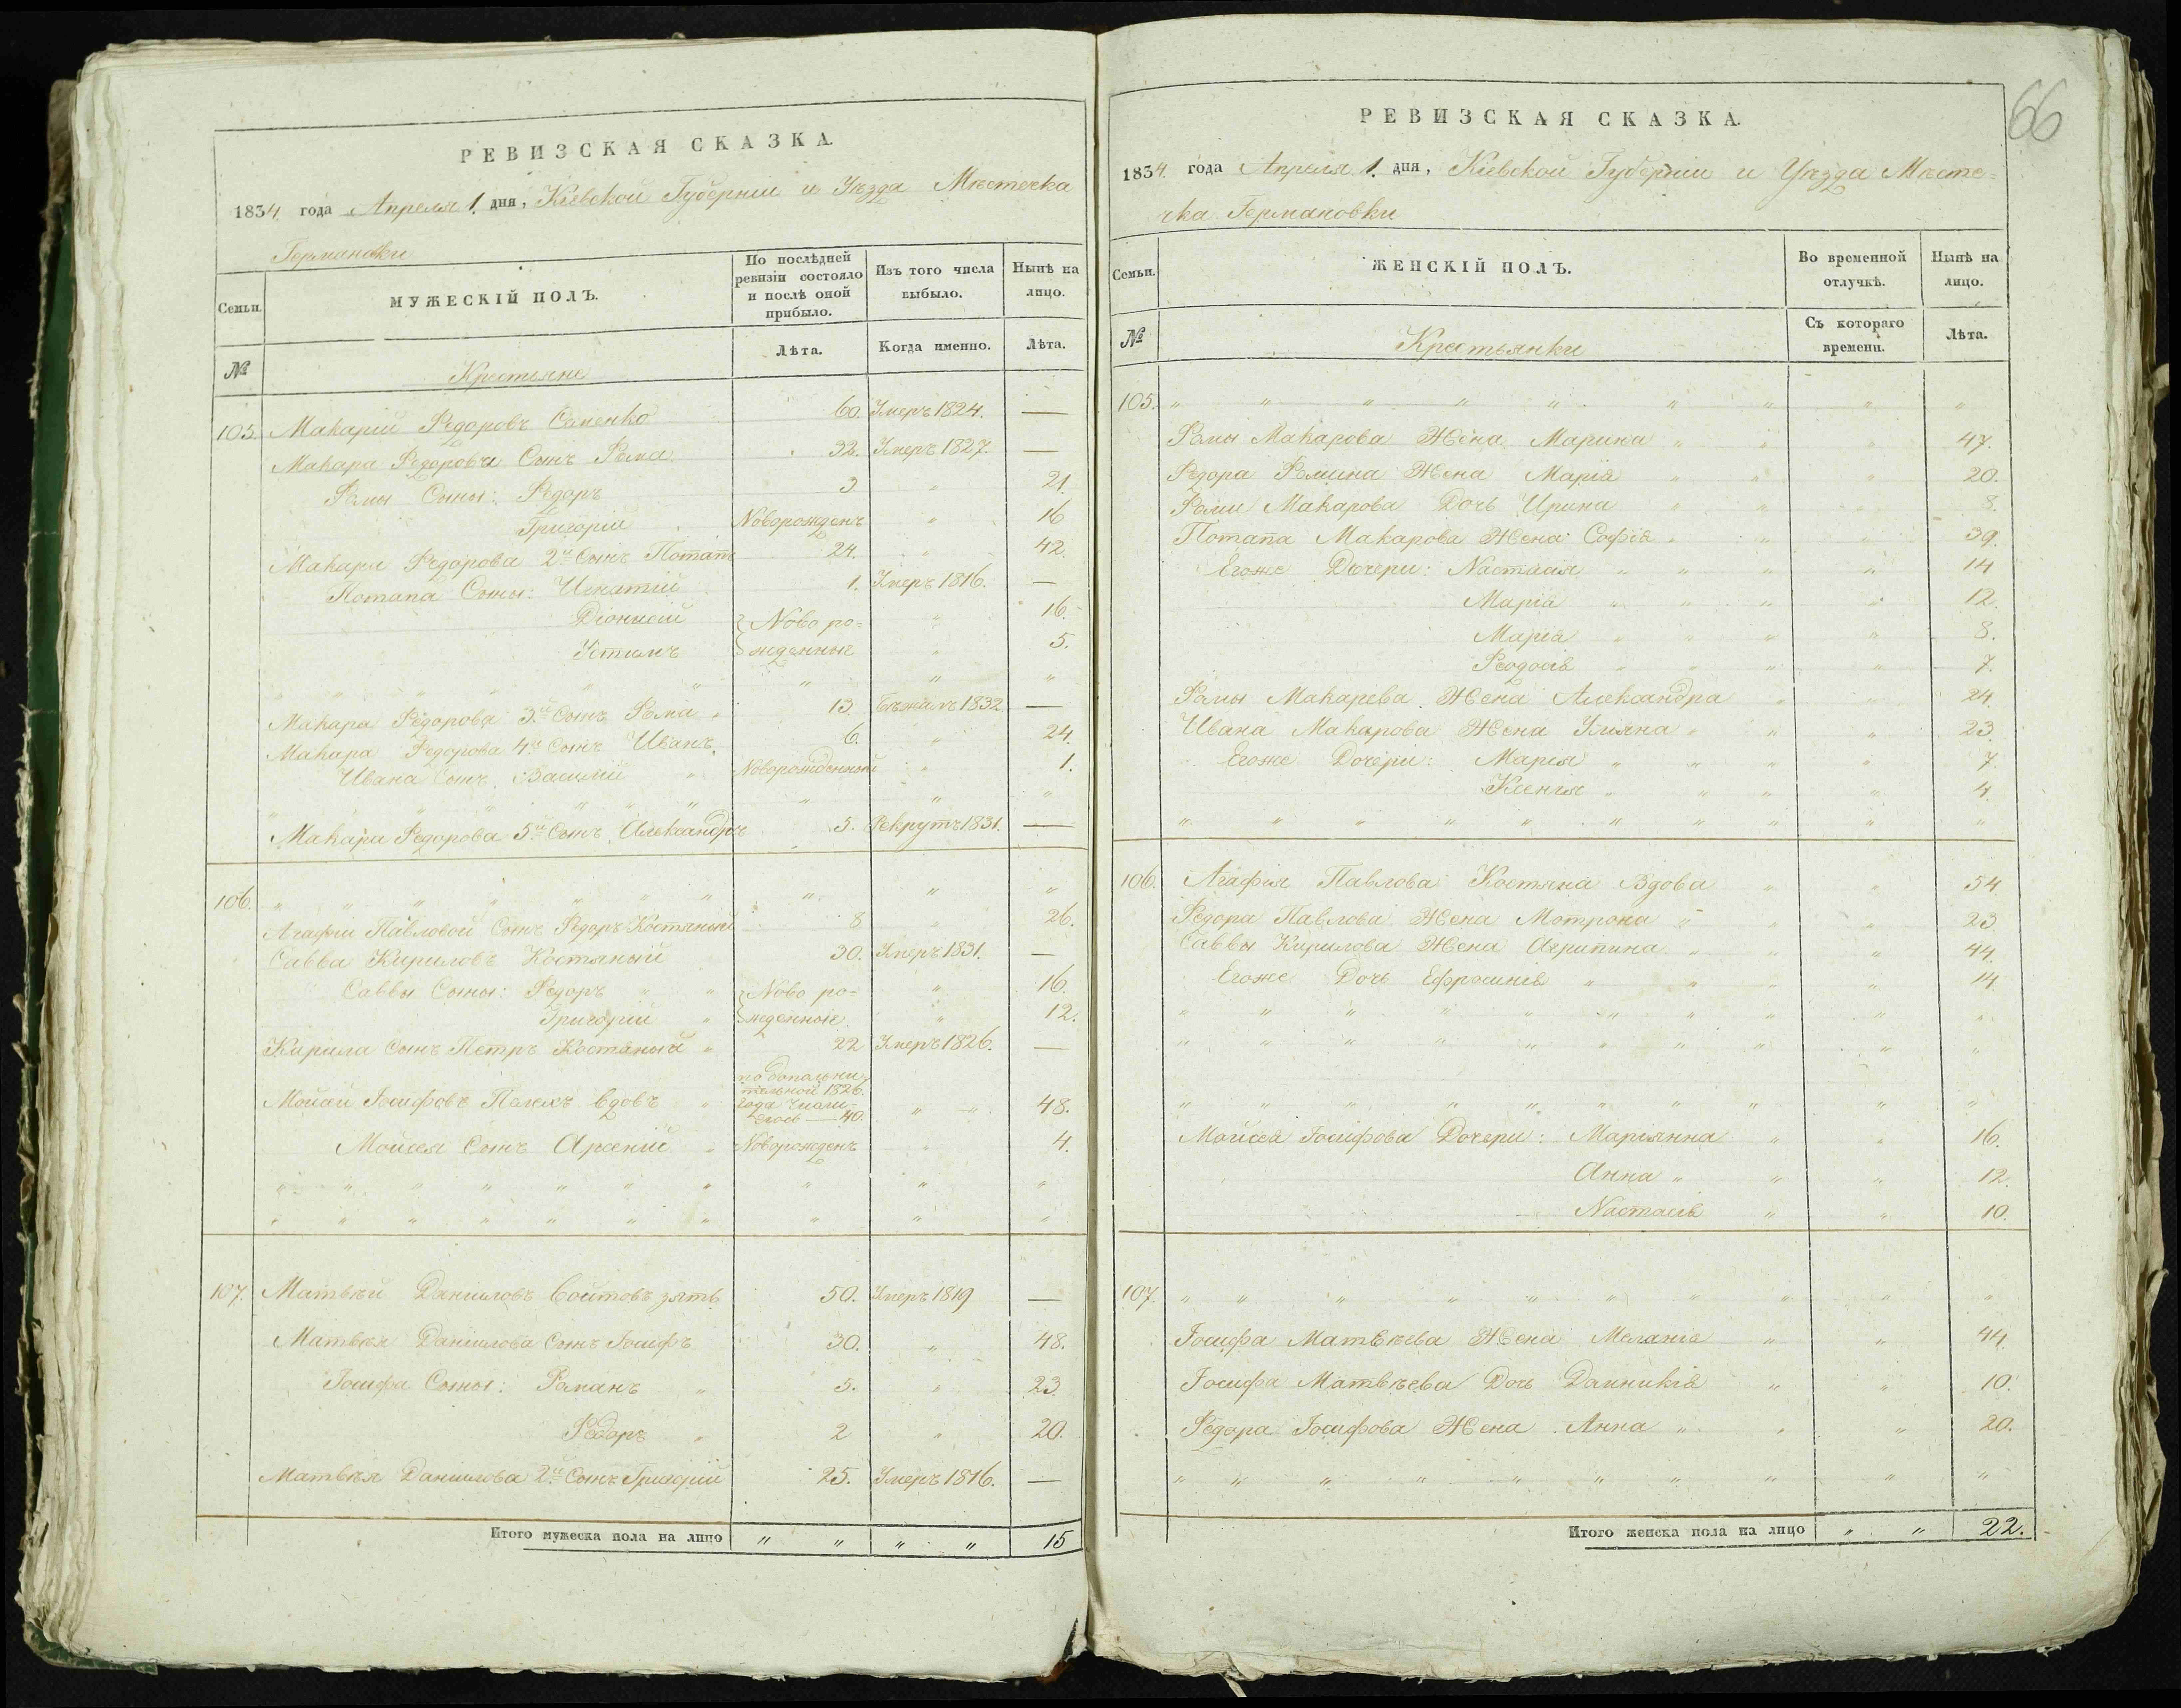 РЕВИЗСКАЯ СКАЗКА.
1834. года Апреля 1. дня, Кіевской Губерніи и Уѣзда Мѣстечка
Германовки
Семьи.
МУЖЕСКІЙ ПОЛЪ.
По послѣдней ревизіи состояло и послѣ оной прибыло.
Изъ того числа выбыло.
Нынѣ на лицо.
№
Крестьяне
Лѣта.
Когда именно.
Лѣта.
105. Макарій Ѳедоровъ 60. Умеръ 1824. —
Макара Ѳедорова Сынъ Ѳома 32. Умеръ 1827. —
Ѳомы Сыны: Ѳедоръ 3 " 21.
Григорій Новорожденъ " 16
Макара Ѳедорова 2й Сынъ Потапъ 24. " 42.
Потапа Сыны: Игнатій 1. Умеръ 1816. —
Діонисій } Ново ро= " 16.
Устимъ } жденные " 5.
" " " " " " " " "
Макара Ѳедорова 3й Сынъ Ѳома " 13. Бѣжалъ 1832 —
Макара Ѳедорова 4й Сынъ Иванъ. 6. " 24.
Ивана Сынъ Василій " Новорожденный " 1.
" " " " " " " " "
Макара Ѳедорова 5й Сынъ Александръ 5. Рекрутъ 1831. —
106. " " " " " " " " " "
Агафіи Павловой Сынъ Ѳедоръ Костяный 8 " 26.
Савва Кириловъ Костяный 30. Умеръ 1831. —
Саввы Сыны: Ѳедоръ " " } Ново ро= " 16.
Григорій " } жденные " 12.
Кирила Сынъ Петръ Костяный " 22 Умеръ 1826. —
по дополни-
тельной 1826.
Мойсей Іосифовъ вдовъ " года числи-
лось — 40. " " 48.
Мойсея Сынъ Арсеній " Новорожденъ " 4.
" " " " " " " " " "
" " " " " " " " " "
107. Матвѣй Даниловъ Войтовъ зять 50. Умеръ 1819 —
Матвѣя Данилова Сынъ Іосифъ 30. " 48.
Іосифа Сыны: Романъ " 5. " 23
Ѳедоръ " 2 " 20.
Матвѣя Данилова 2й Сынъ Григорій 25. Умеръ 1816. —
Итого мужеска пола на лицо " " " " 15
66
РЕВИЗСКАЯ СКАЗКА.
1834. года Апреля 1. дня, Кіевской Губерніи и Уѣзда Мѣсте=
чка Германовки
Семьи.
ЖЕНСКІЙ ПОЛЪ.
Во временной отлучкѣ.
Нынѣ на лицо.
№
Крестьянки
Съ котораго времени.
Лѣта.
105. " " " " " " " " "
Ѳомы Макарова Жена Марина " " " 47.
Ѳедора Ѳомина Жена Марія " " " 20.
Ѳомы Макарова Дочь Ирина " " " 8.
Потапа Макарова Жена Софія " " " 39.
Егоже Дочери: Настасія " " " " 14
Марія " " " " 12.
Марія " " " " 8.
Ѳеодосія " " " " 7.
Ѳомы Макарева Жена Александра " " 24.
Ивана Макарова Жена Уляна " " " 23.
Егоже Дочери: Марія " " " " 7
Ксенія " " " " 4.
" " " " " " " " " "
106. Агафія Павлова Костяна Вдова " " 54.
Ѳедора Павлова Жена Мотрона " " " 23
Саввы Кирилова Жена Агрипина " " " 44.
Егоже Дочь Ефросинія " " " " 14.
" " " " " " " " " "
" " " " " " " " " "
" " " " " " " " " "
Мойсея Іосифова Дочери: Маріянна " " 16.
Анна " " " 12.
Настасія " " 10.
107. " " " " " " " " " "
Іосифа Матвѣева Жена Меланія " " 44.
Іосифа Матвѣева Дочь Домникія " " 10.
Ѳедора Іосифова Жена Анна " " " 20.
" " " " " " " " " "
Итого женска пола на лицо " " 22.